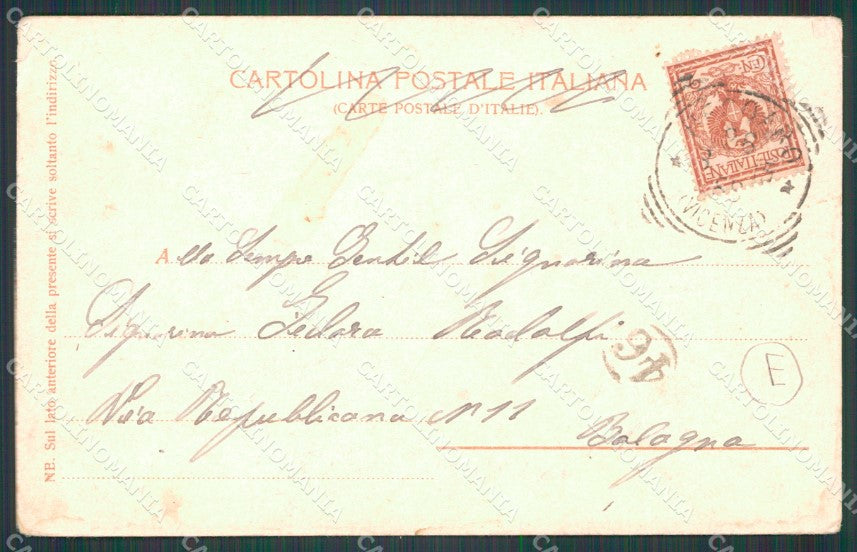 CARTOLINA POSTALE ITALIANA
(CARTE POSTALE D'ITALIE).
CEN
POSTE ITALIANE
(VICENZA)
Alla Sempre Gentil Signorina
Signorina Fedora Rodolfi
Via Repubblicana N 11
Bologna
46
E
NB. Sul lato anteriore della presente si scrive soltanto l'indirizzo.
CARTOLINOMANIA